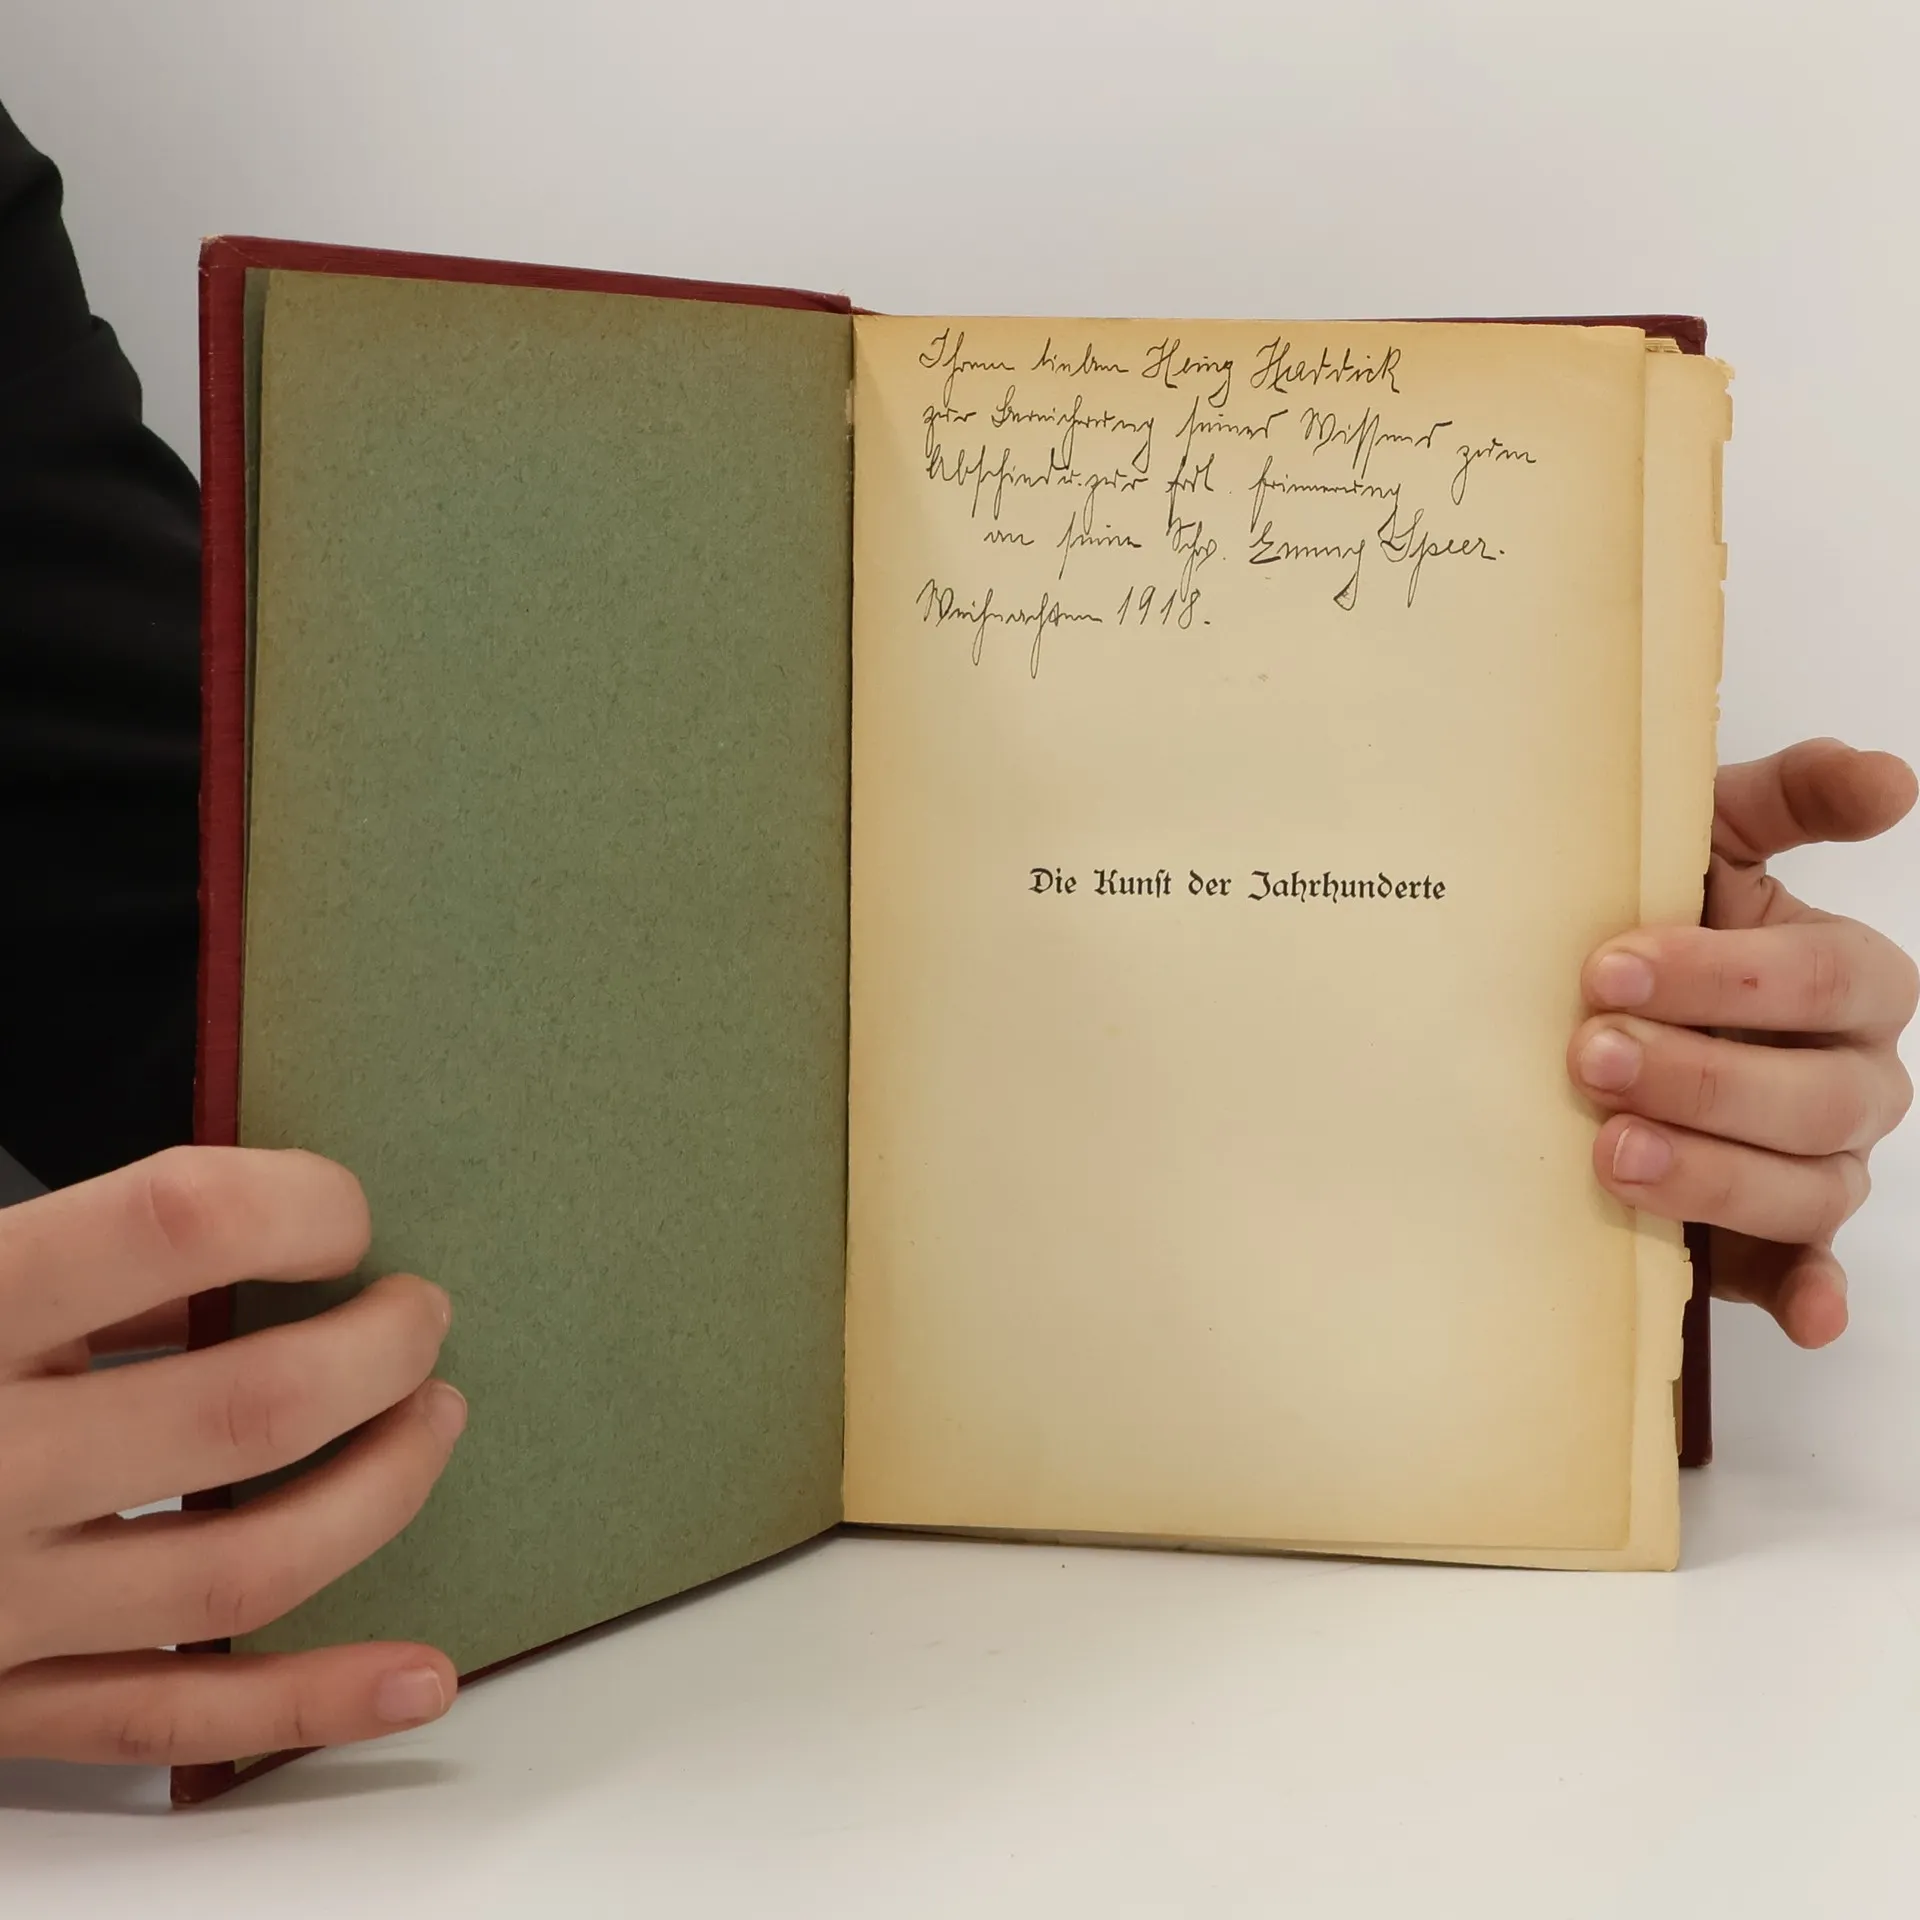 Ihrem lieben Heinz Haddick
zur Bereicherung seines Wissens zum
Abschied u. zur frdl. Erinnerung
an seine Schw. Emmy Speer.
Weihnachten 1918.
Die Kunst der Jahrhunderte